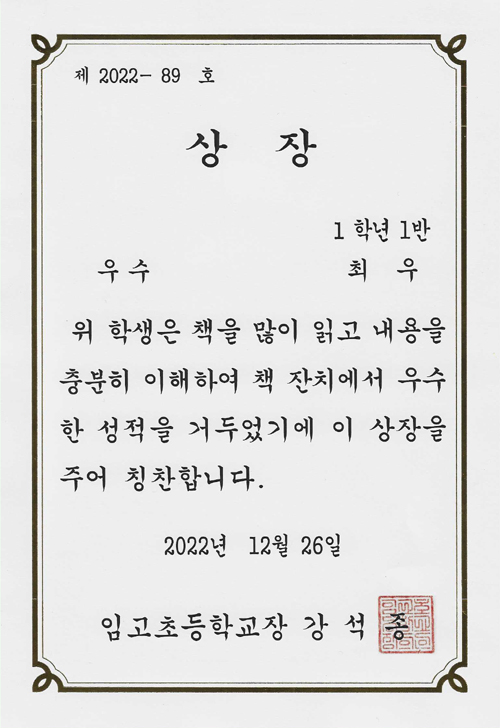 제 2022- 89 호
상 장
1 학년 1반
우 수 최 우
위 학생은 책을 많이 읽고 내용을
충분히 이해하여 책 잔치에서 우수
한 성적을 거두었기에 이 상장을
주어 칭찬합니다.
2022년 12월 26일
임고초등학교장 강 석 종